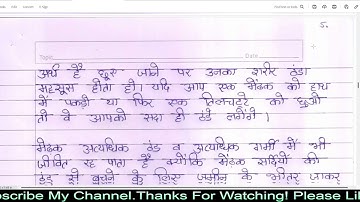 5.
Topic
Date
अर्थ है छुए जाने पर उनका शरीर ठंडा
महसूस होता हो। यदि आप एक मेंढक को हाथ
में पकड़ो या फिर एक तिलचट्टे को छुओ
तो वे आपको सदा ही ठंडे लगेंगे।
मेंढक अत्यधिक ठंड व अत्यधिक गर्मी में भी
जीवित रह पाता है क्योंकि मेंढक सर्दियों की
ठंड से बचने के लिए ज़मीन के भीतर जाकर
scribe My Channel.Thanks For Watching! Please Li